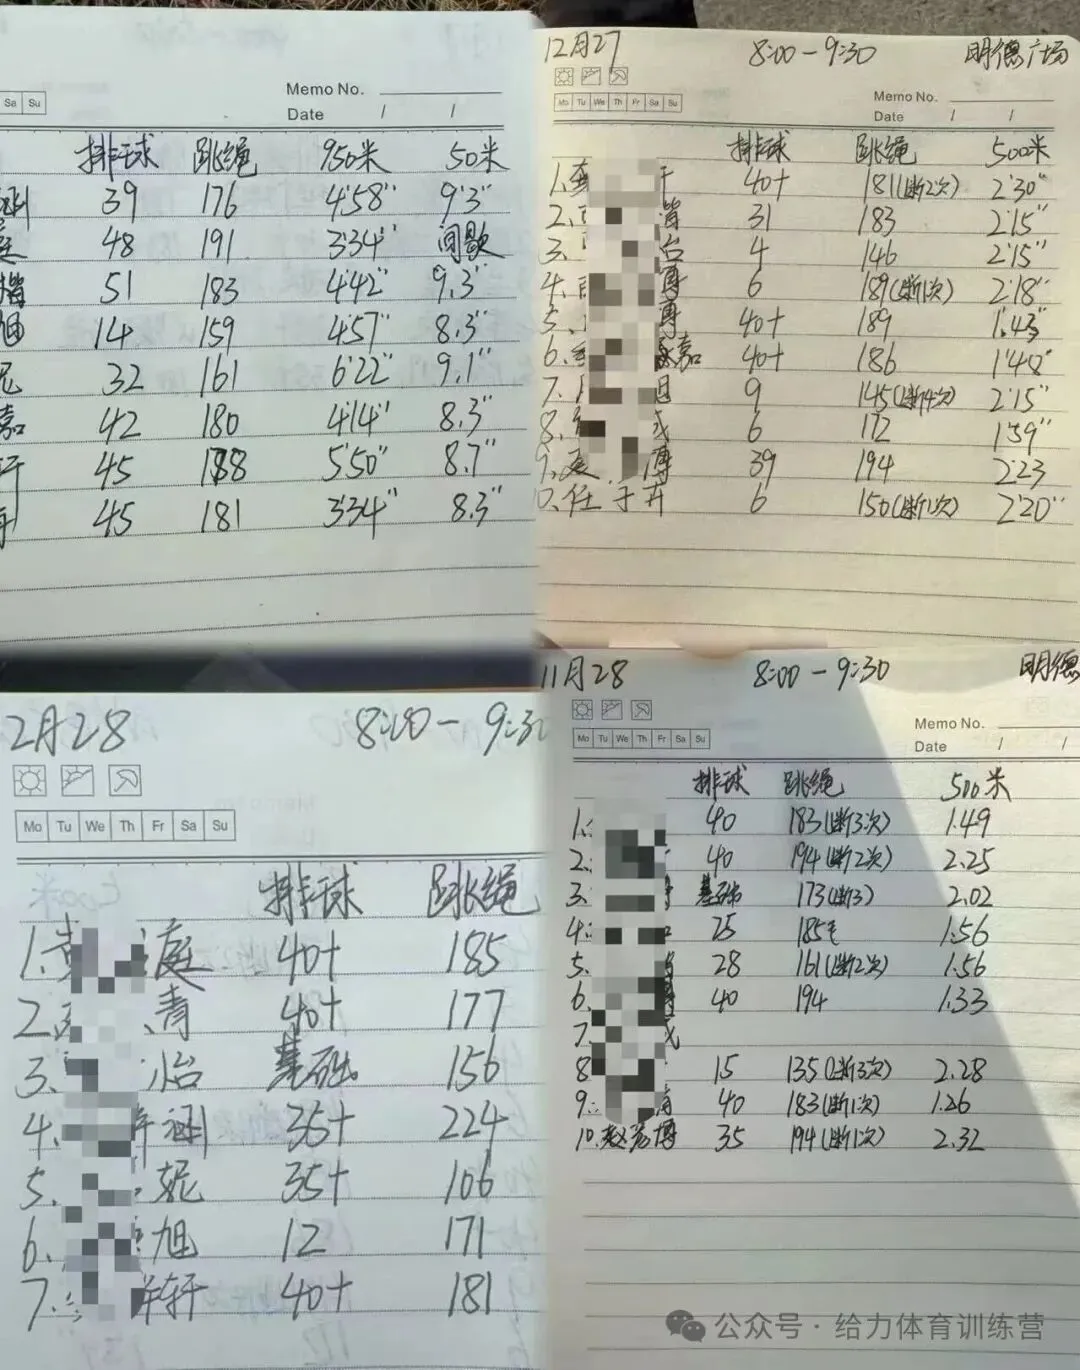 Sa Su
Memo No.
Date / /
排球 跳绳 950米 50米
涵 39 176 4'58" 9'3"
庭 48 191 3'34" 间歇
51 183 4'42" 9.3"
旭 14 159 4'57" 8.3"
妮 32 161 6'22" 9.1"
嘉 42 180 4'14" 8.3"
轩 45 188 5'50" 8.7"
45 181 3'34" 8.3"
12月27 8:00-9:30 明德广场
Mo Tu We Th Fr Sa Su
Memo No.
Date / /
排球 跳绳 500米
1. 40+ 181(断2次) 2'30"
2. 31 183 2'15"
3. 4 146 2'15"
4. 博 6 189(断1次) 2'18"
5. 博 40+ 189 1'43"
6. 嘉 40+ 186 1'48"
7. 9 145(断4次) 2'15"
8. 成 6 172 1'59"
9. 博 39 194 2'23
10.任于卉 6 150(断1次) 2'20"
2月28 8:00-9:30
Mo Tu We Th Fr Sa Su
排球 跳绳
1. 庭 40+ 185
2. 青 40+ 177
3. 怡 基础 156
4. 涵 35+ 224
5. 妮 35+ 166
6. 旭 12 171
7. 轩 40+ 181
11月28 8:00-9:30 明德
Mo Tu We Th Fr Sa Su
Memo No.
Date / /
排球 跳绳 500米
1. 40 183(断3次) 1.49
2. 40 194(断2次) 2.25
3. 基础 173(断3) 2.02
4. 25 185 1.56
5. 28 161(断2次) 1.56
6. 博 40 194 1.33
7. 成
8. 15 135(断3次) 2.28
9. 40 183(断1次) 1.26
10.赵 博 35 194(断1次) 2.32
公众号 · 给力体育训练营